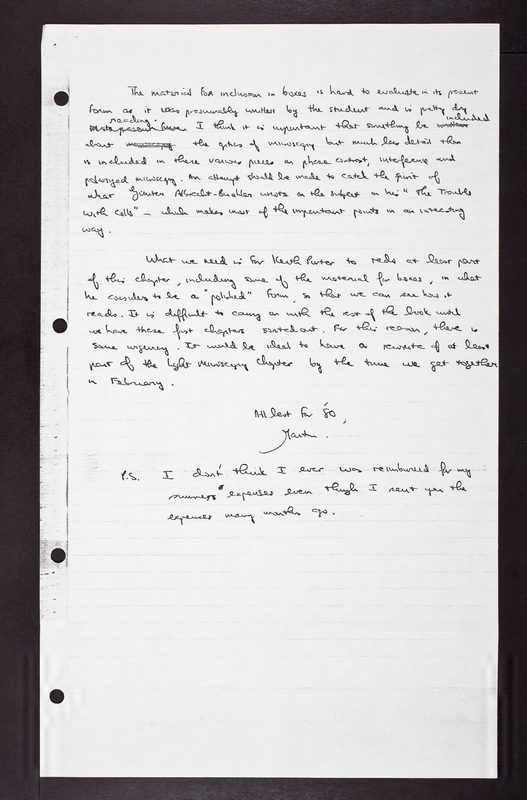 The material for inclusion in boxes is hard to evaluate in its present
form as it was presumably written by the student and is pretty dry
reading. included
in its present form I think it is important that something be written
about the optics of microscopy but much less detail than
is included in these various pieces on phase contrast, interference and
polarized microscopy. An attempt should be made to catch the spirit of
what Guenter Albrecht-Buehler wrote on the subject in his "The Trouble
with Cells" — which makes most of the important points in an interesting
way.
What we need is for Keith Porter to redo at least part
of this chapter, including some of the material for boxes, in what
he considers to be a "polished" form, so that we can see how it
reads. It is difficult to carry on with the rest of the book until
we have these first chapters sorted out. For this reason, there is
some urgency. It would be ideal to have a rewrite of at least
part of the Light Microscopy Chapter by the time we get together
in February.
All best for '80,
Martin.
P.S. I don't think I ever was reimbursed for my
summer expenses even though I sent you the
expenses many months ago.